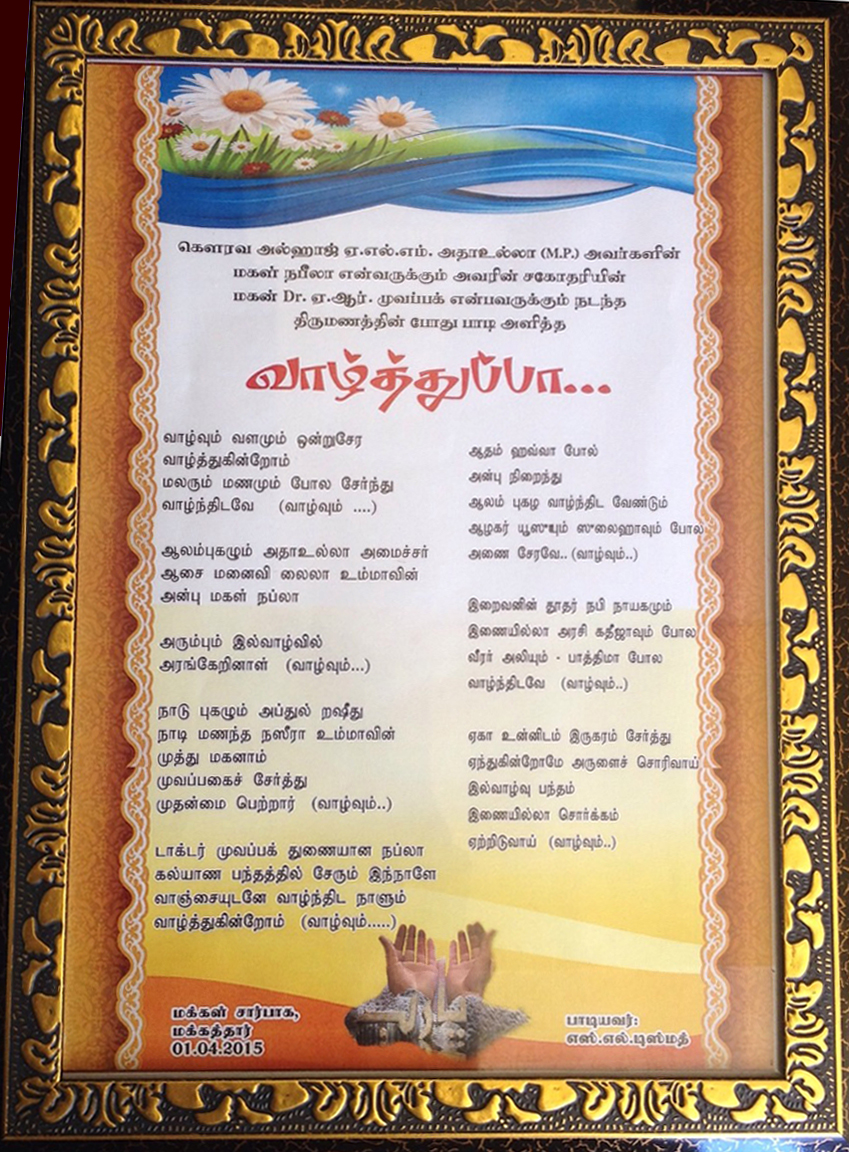 கௌரவ அல்ஹாஜ் ஏ.எல்.எம். அதாஉல்லா (M.P.) அவர்களின்
மகள் நபீலா என்வருக்கும் அவரின் சகோதரியின்
மகன் Dr. ஏ.ஆர். முவப்பக் என்பவருக்கும் நடந்த
திருமணத்தின் போது பாடி அளித்த
வாழ்த்துப்பா...
வாழ்வும் வளமும் ஒன்றுசேர
வாழ்த்துகின்றோம்
மலரும் மணமும் போல சேர்ந்து
வாழ்ந்திடவே (வாழ்வும் ....)
ஆலம்புகழும் அதாஉல்லா அமைச்சர்
ஆசை மனைவி லைலா உம்மாவின்
அன்பு மகள் நப்லா
அரும்பும் இல்வாழ்வில்
அரங்கேறினாள் (வாழ்வும்...)
நாடு புகழும் அப்துல் றஷீது
நாடி மணந்த நஸீரா உம்மாவின்
முத்து மகனாம்
முவப்பகைச் சேர்த்து
முதன்மை பெற்றார் (வாழ்வும்..)
டாக்டர் முவப்பக் துணையான நப்லா
கல்யாண பந்தத்தில் சேரும் இந்நாளே
வாஞ்சையுடனே வாழ்ந்திட நாளும்
வாழ்த்துகின்றோம் (வாழ்வும்.....)
ஆதம் ஹவ்வா போல்
அன்பு நிறைந்து
ஆலம் புகழ வாழ்ந்திட வேண்டும்
ஆழகர் யூஸுயும் ஸுலைஹாவும் போல
அணை சேரவே.. (வாழ்வும்..)
இறைவனின் தூதர் நபி நாயகமும்
இணையில்லா அரசி கதீஜாவும் போல
வீரர் அலியும் - பாத்திமா போல
வாழ்ந்திடவே (வாழ்வும்..)
ஏகா உன்னிடம் இருகரம் சேர்த்து
ஏந்துகின்றோமே அருளைச் சொரிவாய்
இல்வாழ்வு பந்தம்
இணையில்லா சொர்க்கம்
ஏற்றிடுவாய் (வாழ்வும்..)
மக்கள் சார்பாக,
மக்கத்தார்
01.04.2015
பாடியவர்:
எஸ்.எல்.டிஸ்மத்